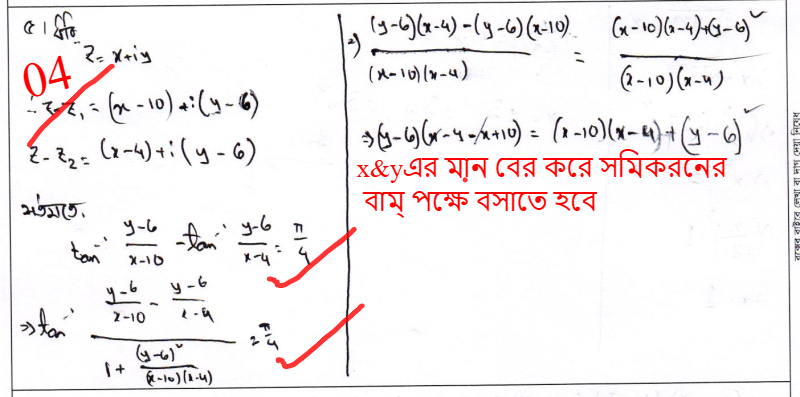 ৫। ধরি
z = x+iy
04
∴ z-z₁ = (x-10)+i(y-6)
z-z₂ = (x-4)+i(y-6)
শর্তমতে,
tan⁻¹ (y-6)/(x-10) - tan⁻¹ (y-6)/(x-4) = π/4
⇒ tan⁻¹ ((y-6)/(x-10) - (y-6)/(x-4))/(1 + (y-6)²/((x-10)(x-4))) = π/4
⇒ ((y-6)(x-4) - (y-6)(x-10))/((x-10)(x-4)) = ((x-10)(x-4)+(y-6)²)/((x-10)(x-4))
⇒ (y-6)(x-4-x+10) = (x-10)(x-4)+(y-6)²
x&yএর মান বের করে সমিকরনের
বাম্ পক্ষে বসাতে হবে